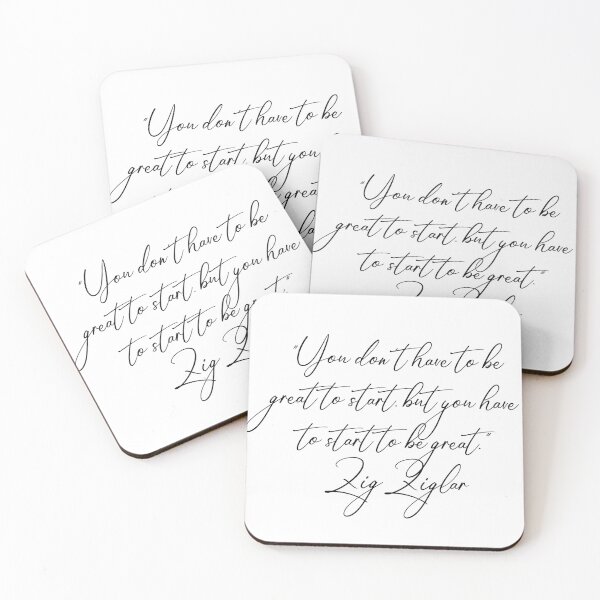 "You don't have to be
great to start, but you
great
"You don't have to be
great to start, but you have
to start to be great."
"You don't have to be
great to start, but you have
to start to be great."
Zig
"You don't have to be
great to start, but you have
to start to be great."
Zig Ziglar